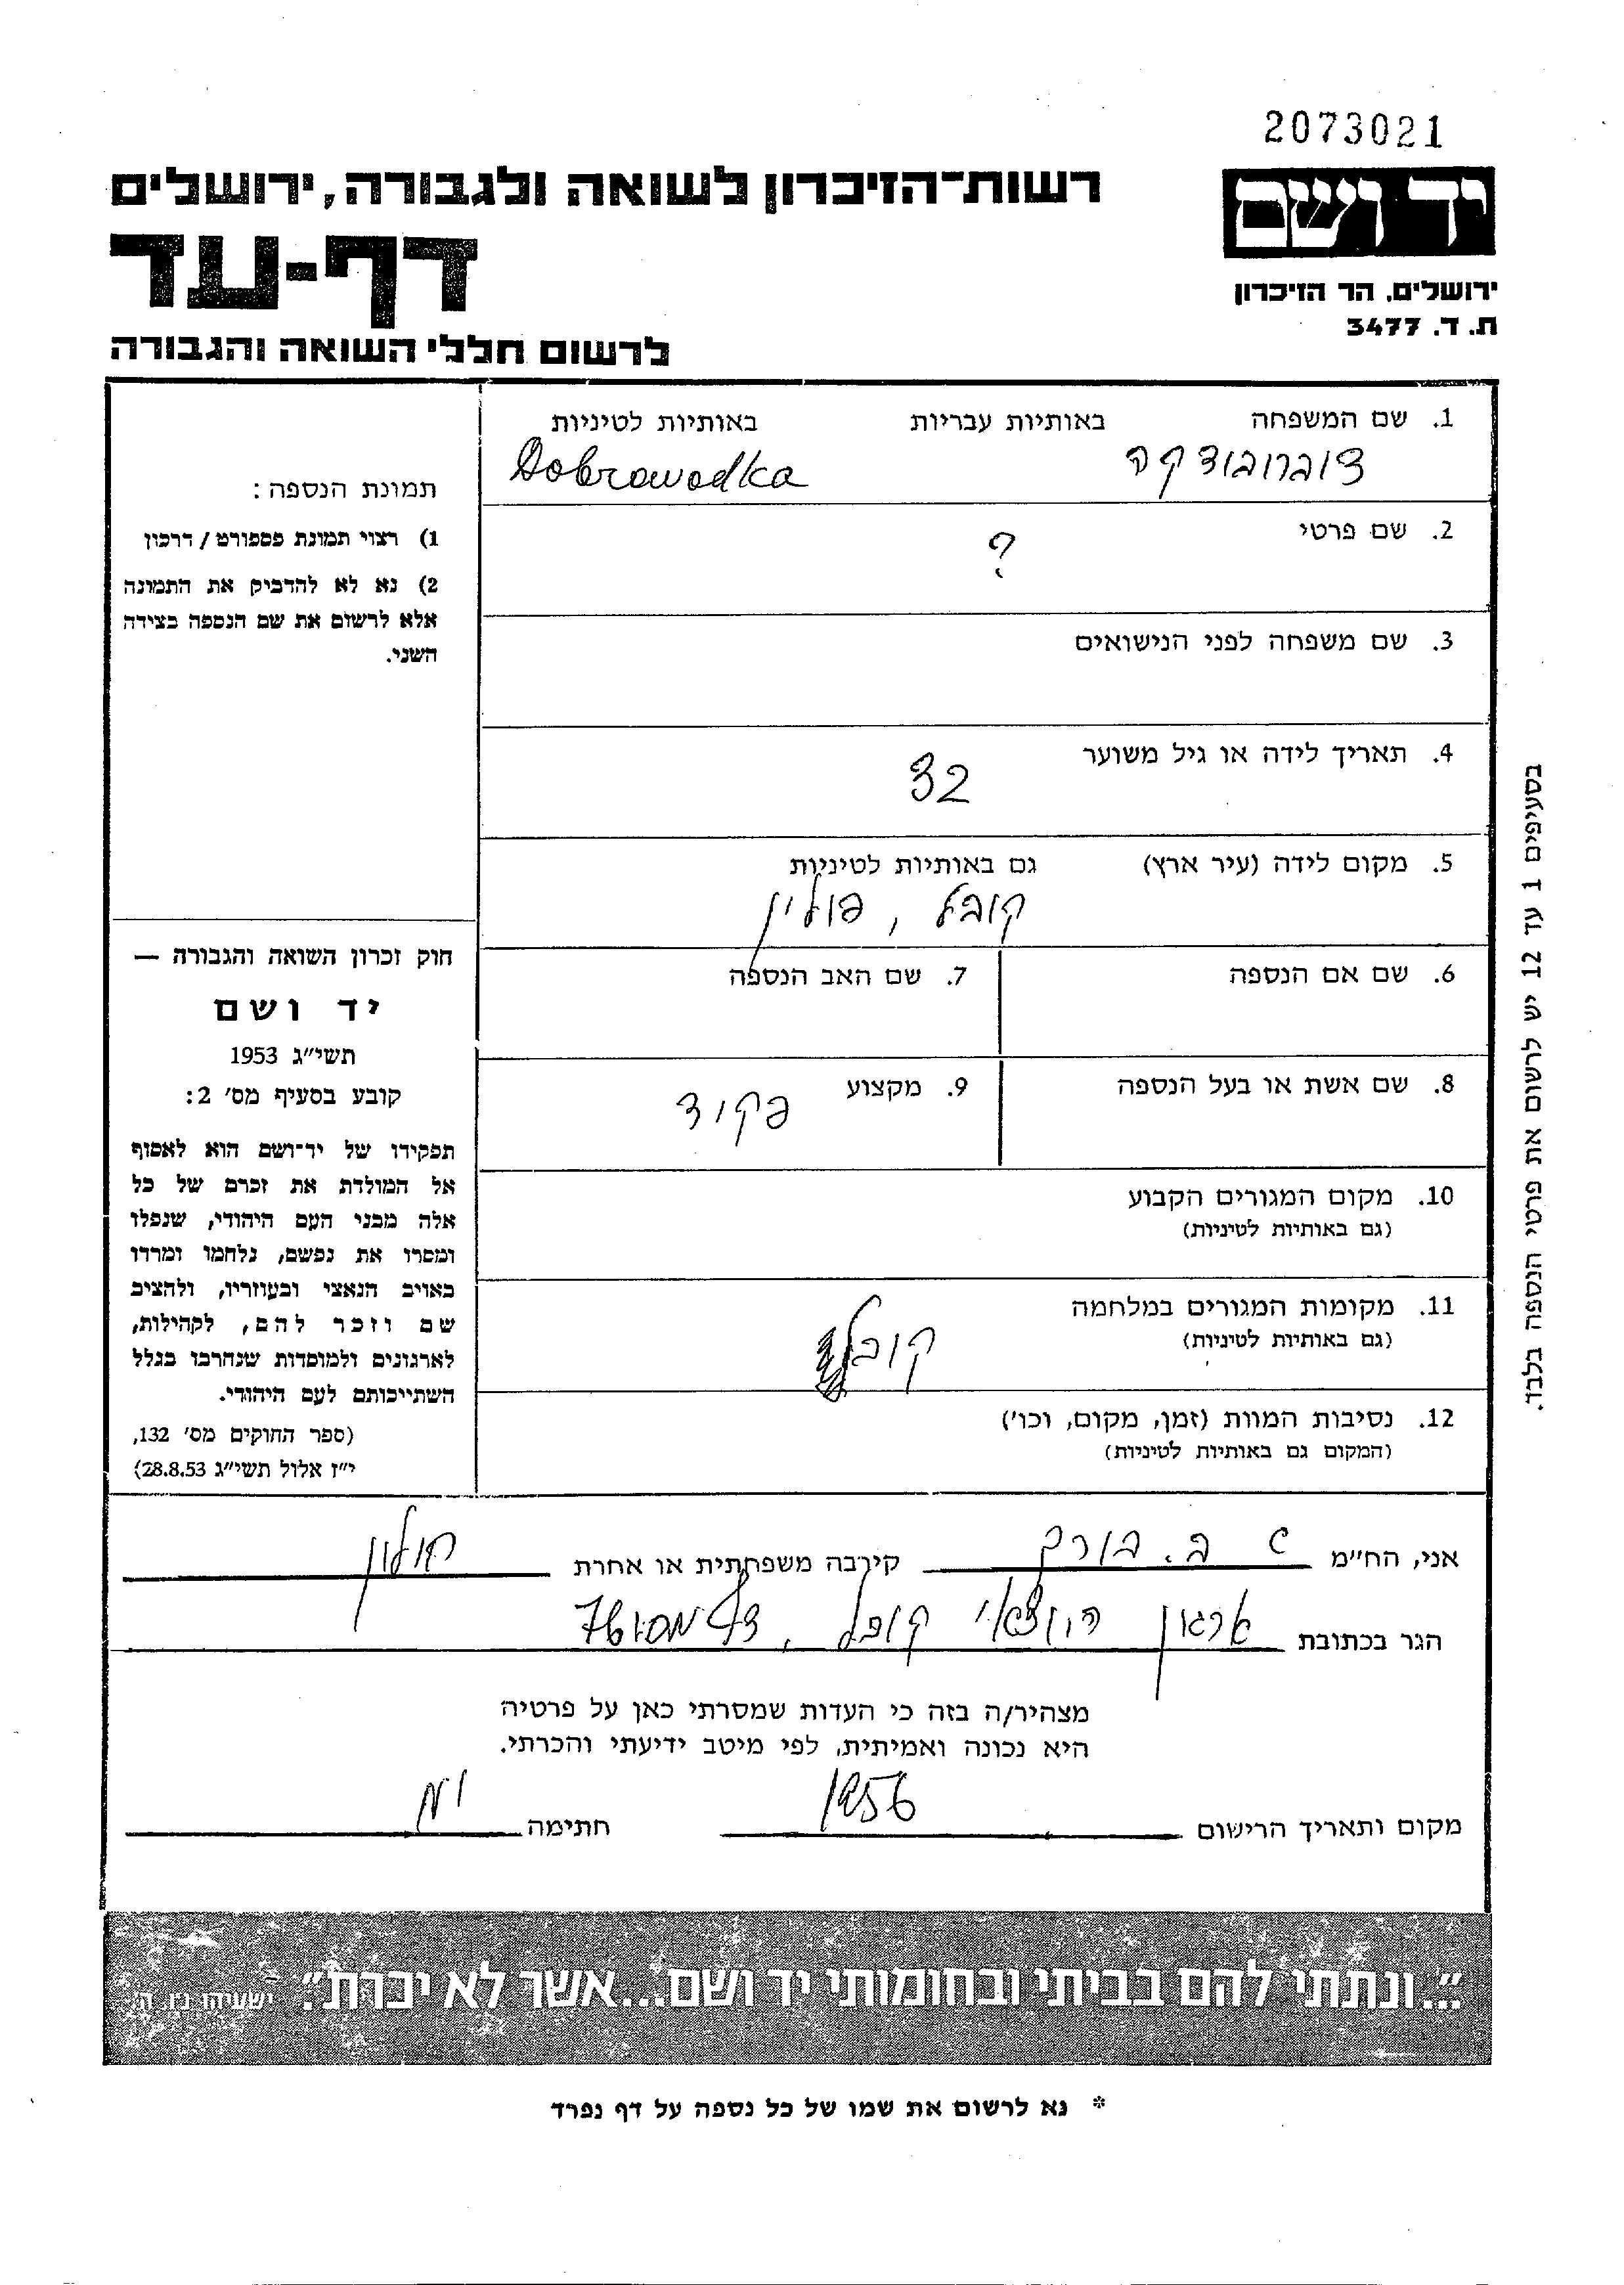 2073021
יד ושם
רשות־הזיכרון לשואה ולגבורה, ירושלים
דף-עד
ירושלים, הר הזיכרון
ת. ד. 3477
לרשום חללי השואה והגבורה
1. שם המשפחה באותיות עבריות באותיות לטיניות
דוברובודקה Dobrowodka
2. שם פרטי
?
3. שם משפחה לפני הנישואים
4. תאריך לידה או גיל משוער
32
5. מקום לידה (עיר ארץ) גם באותיות לטיניות
קובל, פולין
6. שם אם הנספה 7. שם האב הנספה
8. שם אשת או בעל הנספה 9. מקצוע
פקיד
10. מקום המגורים הקבוע
(גם באותיות לטיניות)
11. מקומות המגורים במלחמה
(גם באותיות לטיניות)
קובל
12. נסיבות המוות (זמן, מקום, וכו')
(המקום גם באותיות לטיניות)
תמונת הנספה:
1) רצוי תמונת פספורט / דרכון
2) נא לא להדביק את התמונה
אלא לרשום את שם הנספה בצידה
השני.
חוק זכרון השואה והגבורה —
יד ושם
תשי"ג 1953
קובע בסעיף מס' 2:
תפקידו של יד־ושם הוא לאסוף
אל המולדת את זכרם של כל
אלה מבני העם היהודי, שנפלו
ומסרו את נפשם, נלחמו ומרדו
באויב הנאצי ובעוזריו, ולהציב
שם וזכר להם, לקהילות,
לארגונים ולמוסדות שנחרבו בגלל
השתייכותם לעם היהודי.
(ספר החוקים מס' 132,
י"ז אלול תשי"ג 28.8.53)
בסעיפים 1 עד 12 יש לרשום את פרטי הנספה בלבד.
אני, הח"מ ב. בורק קירבה משפחתית או אחרת
הגר בכתובת ארגון יוצאי קובל,
מצהיר/ה בזה כי העדות שמסרתי כאן על פרטיה
היא נכונה ואמיתית, לפי מיטב ידיעתי והכרתי.
מקום ותאריך הרישום 1956 חתימה
"...ונתתי להם בביתי ובחומותי יד ושם...אשר לא יכרת". ישעיהו נ"ו, ה'
* נא לרשום את שמו של כל נספה על דף נפרד